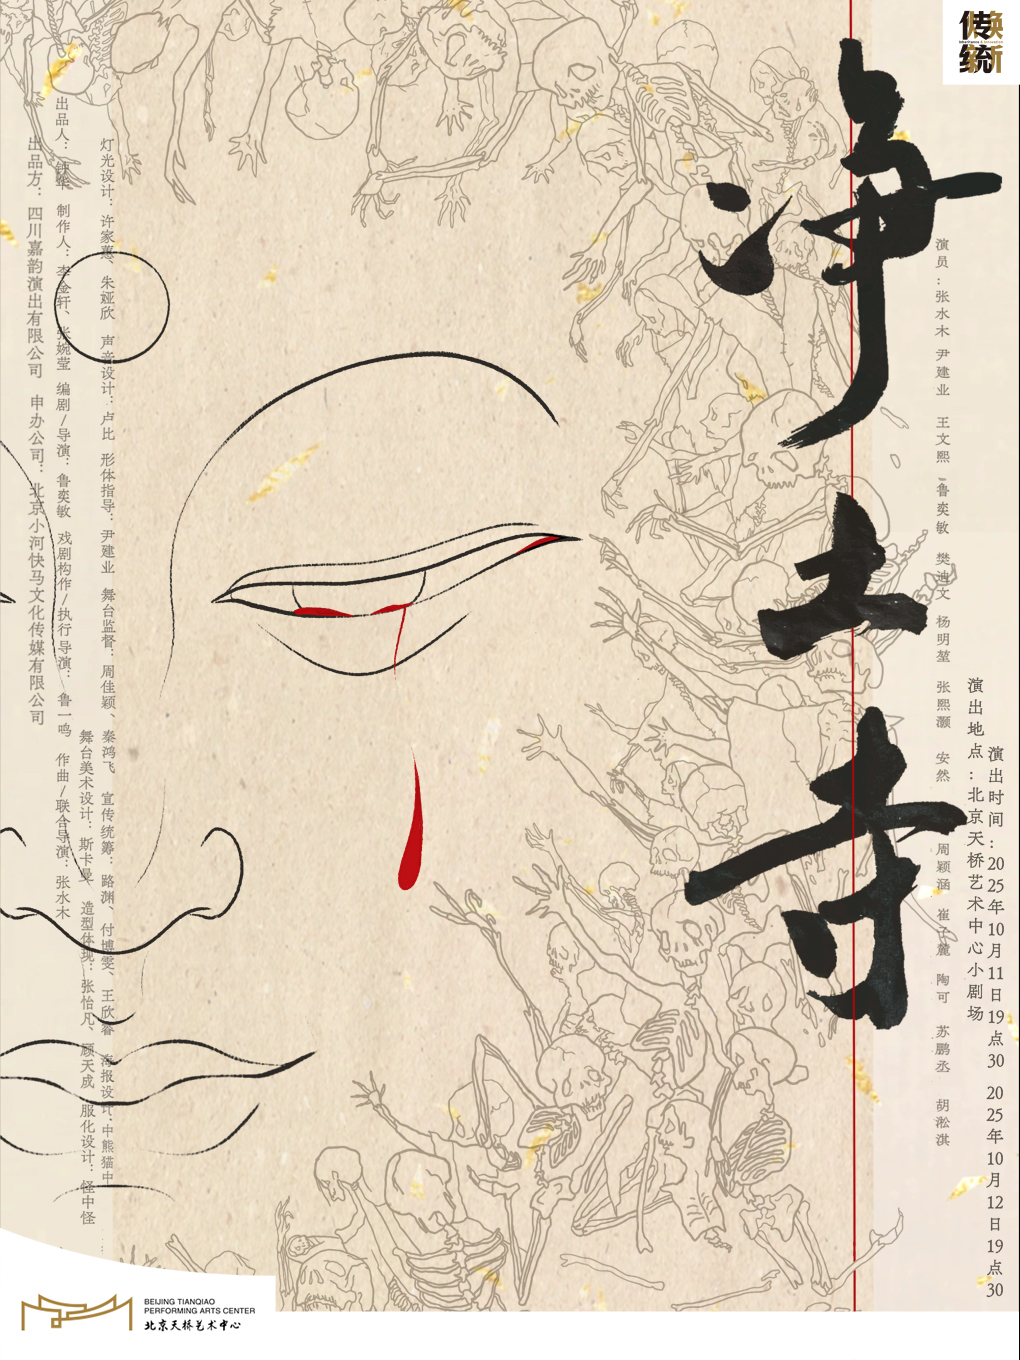 传焕
统新
净土寺
演出时间：2025年10月11日19点30 2025年10月12日19点30
演出地点：北京天桥艺术中心小剧场
演员：张水木 尹建业 王文熙 鲁奕敏 樊迪文 杨明堃 张熙灏 安然 周颖涵 崔子麓 陶可 苏鹏丞 胡淞淇
灯光设计：许家蕙、朱娅欣 声音设计：卢比 形体指导：尹建业 舞台监督：周佳颖、秦鸿飞 宣传统筹：路渊、付博雯、王欣睿 海报设计：中熊猫中
舞台美术设计：斯卡曼 造型体现：张怡凡、顾天成 服化设计：怪中怪
出品人：钟华 制作人：李金轩、张婉莹 编剧/导演：鲁奕敏 戏剧构作/执行导演：鲁一鸣 作曲/联合导演：张水木
出品方：四川嘉韵演出有限公司 申办公司：北京小河快马文化传媒有限公司
BEIJING TIANQIAO
PERFORMING ARTS CENTER
北京天桥艺术中心